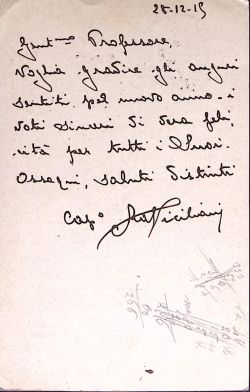 28-12-15
Gent.mo Professore,
Voglia gradire gli auguri
sentiti pel nuovo anno - i
voti sinceri di vera feli
cità per tutti i Suoi.
Ossequi, saluti distinti
Cap.o
266